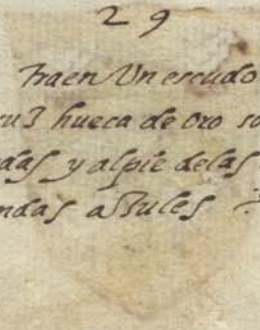 29
traen Un escudo
cruz hueca de oro so
das y alpie delas
ndas asules